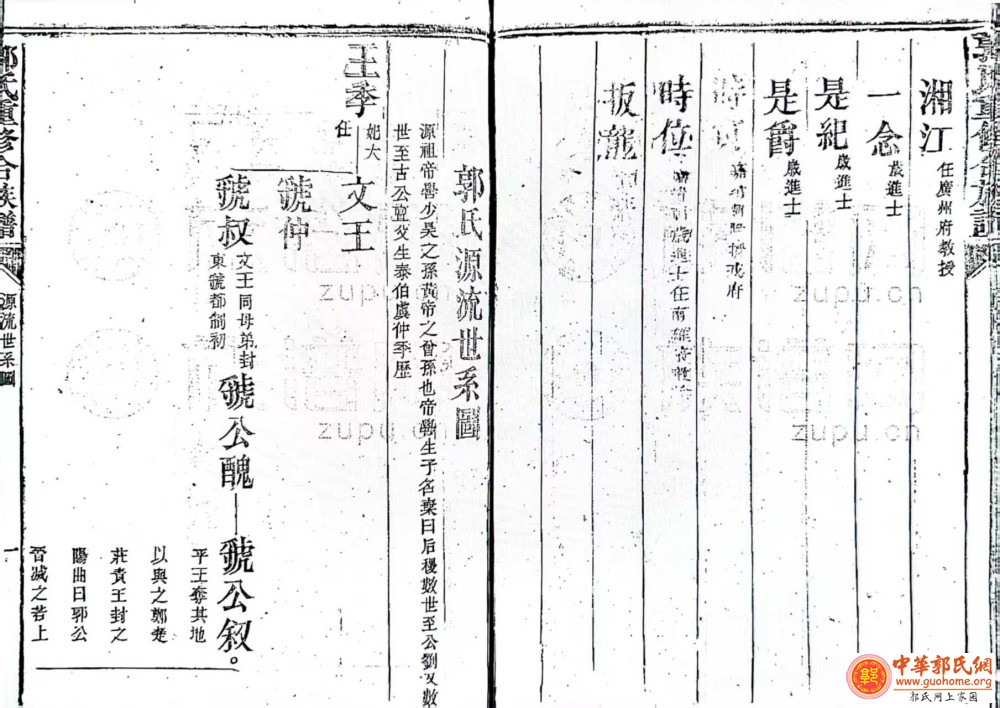 湘江 任廣州府教授
一念 歲進士
是紀 歲進士
是爵 歲進士
時位
扳龍
郭氏源流世系圖
源祖帝嚳少昊之孫黃帝之曾孫也帝嚳生子名棄曰后稷數世至公劉又數
世至古公亶父生泰伯虞仲季歷
王季 妃大任
文王
虢仲
虢叔 文王同母弟封東虢都制初
虢公醜
虢公叙。
平王奪其地
以與之鄭楚
莊責王封之
陽曲曰郭公
晉滅之若上
郭氏重修合族譜
源流世系圖
一
zupu.cn
zupu.cn
zupu.cn
zupu.cn
中華郭氏網
www.guohome.org
郭氏网上家园